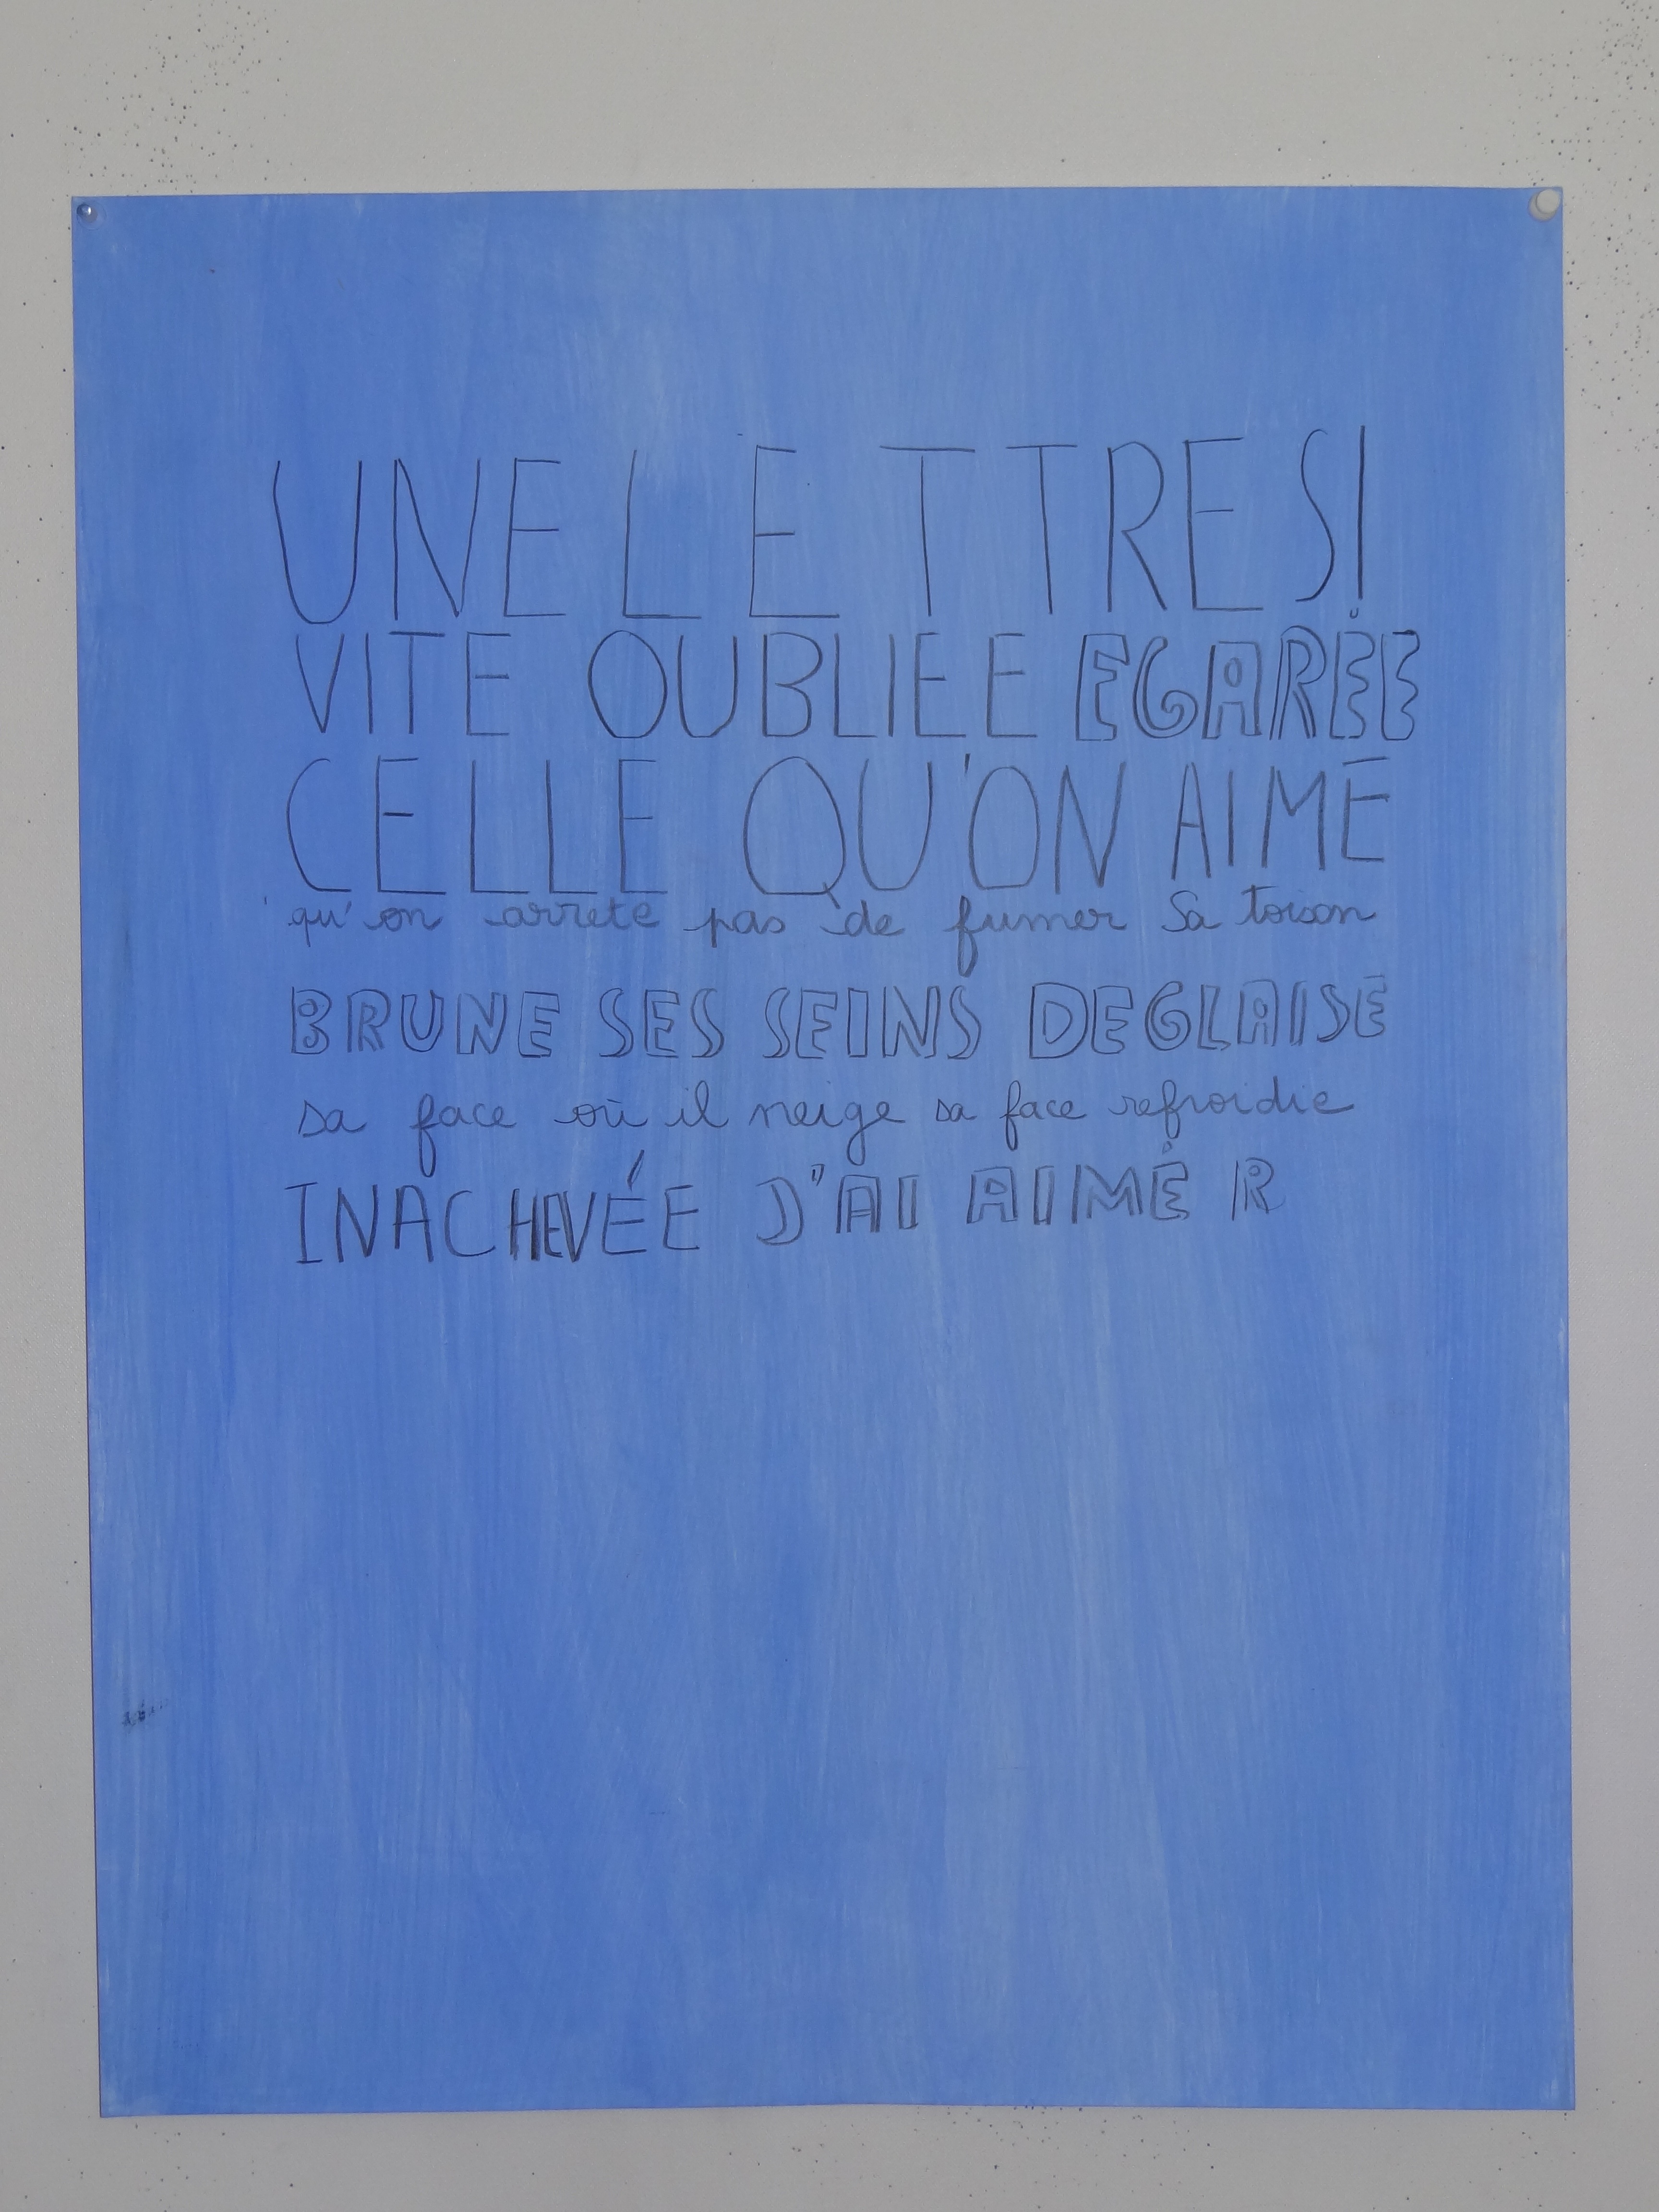 UNE LETTRE SI
VITE OUBLIEE EGARÉE
CELLE QU'ON AIME
qu'on arrete pas de fumer Sa toison
BRUNE SES SEINS DE GLAISE
sa face où il neige sa face refroidie
INACHEVÉE J'AI AIMÉ R